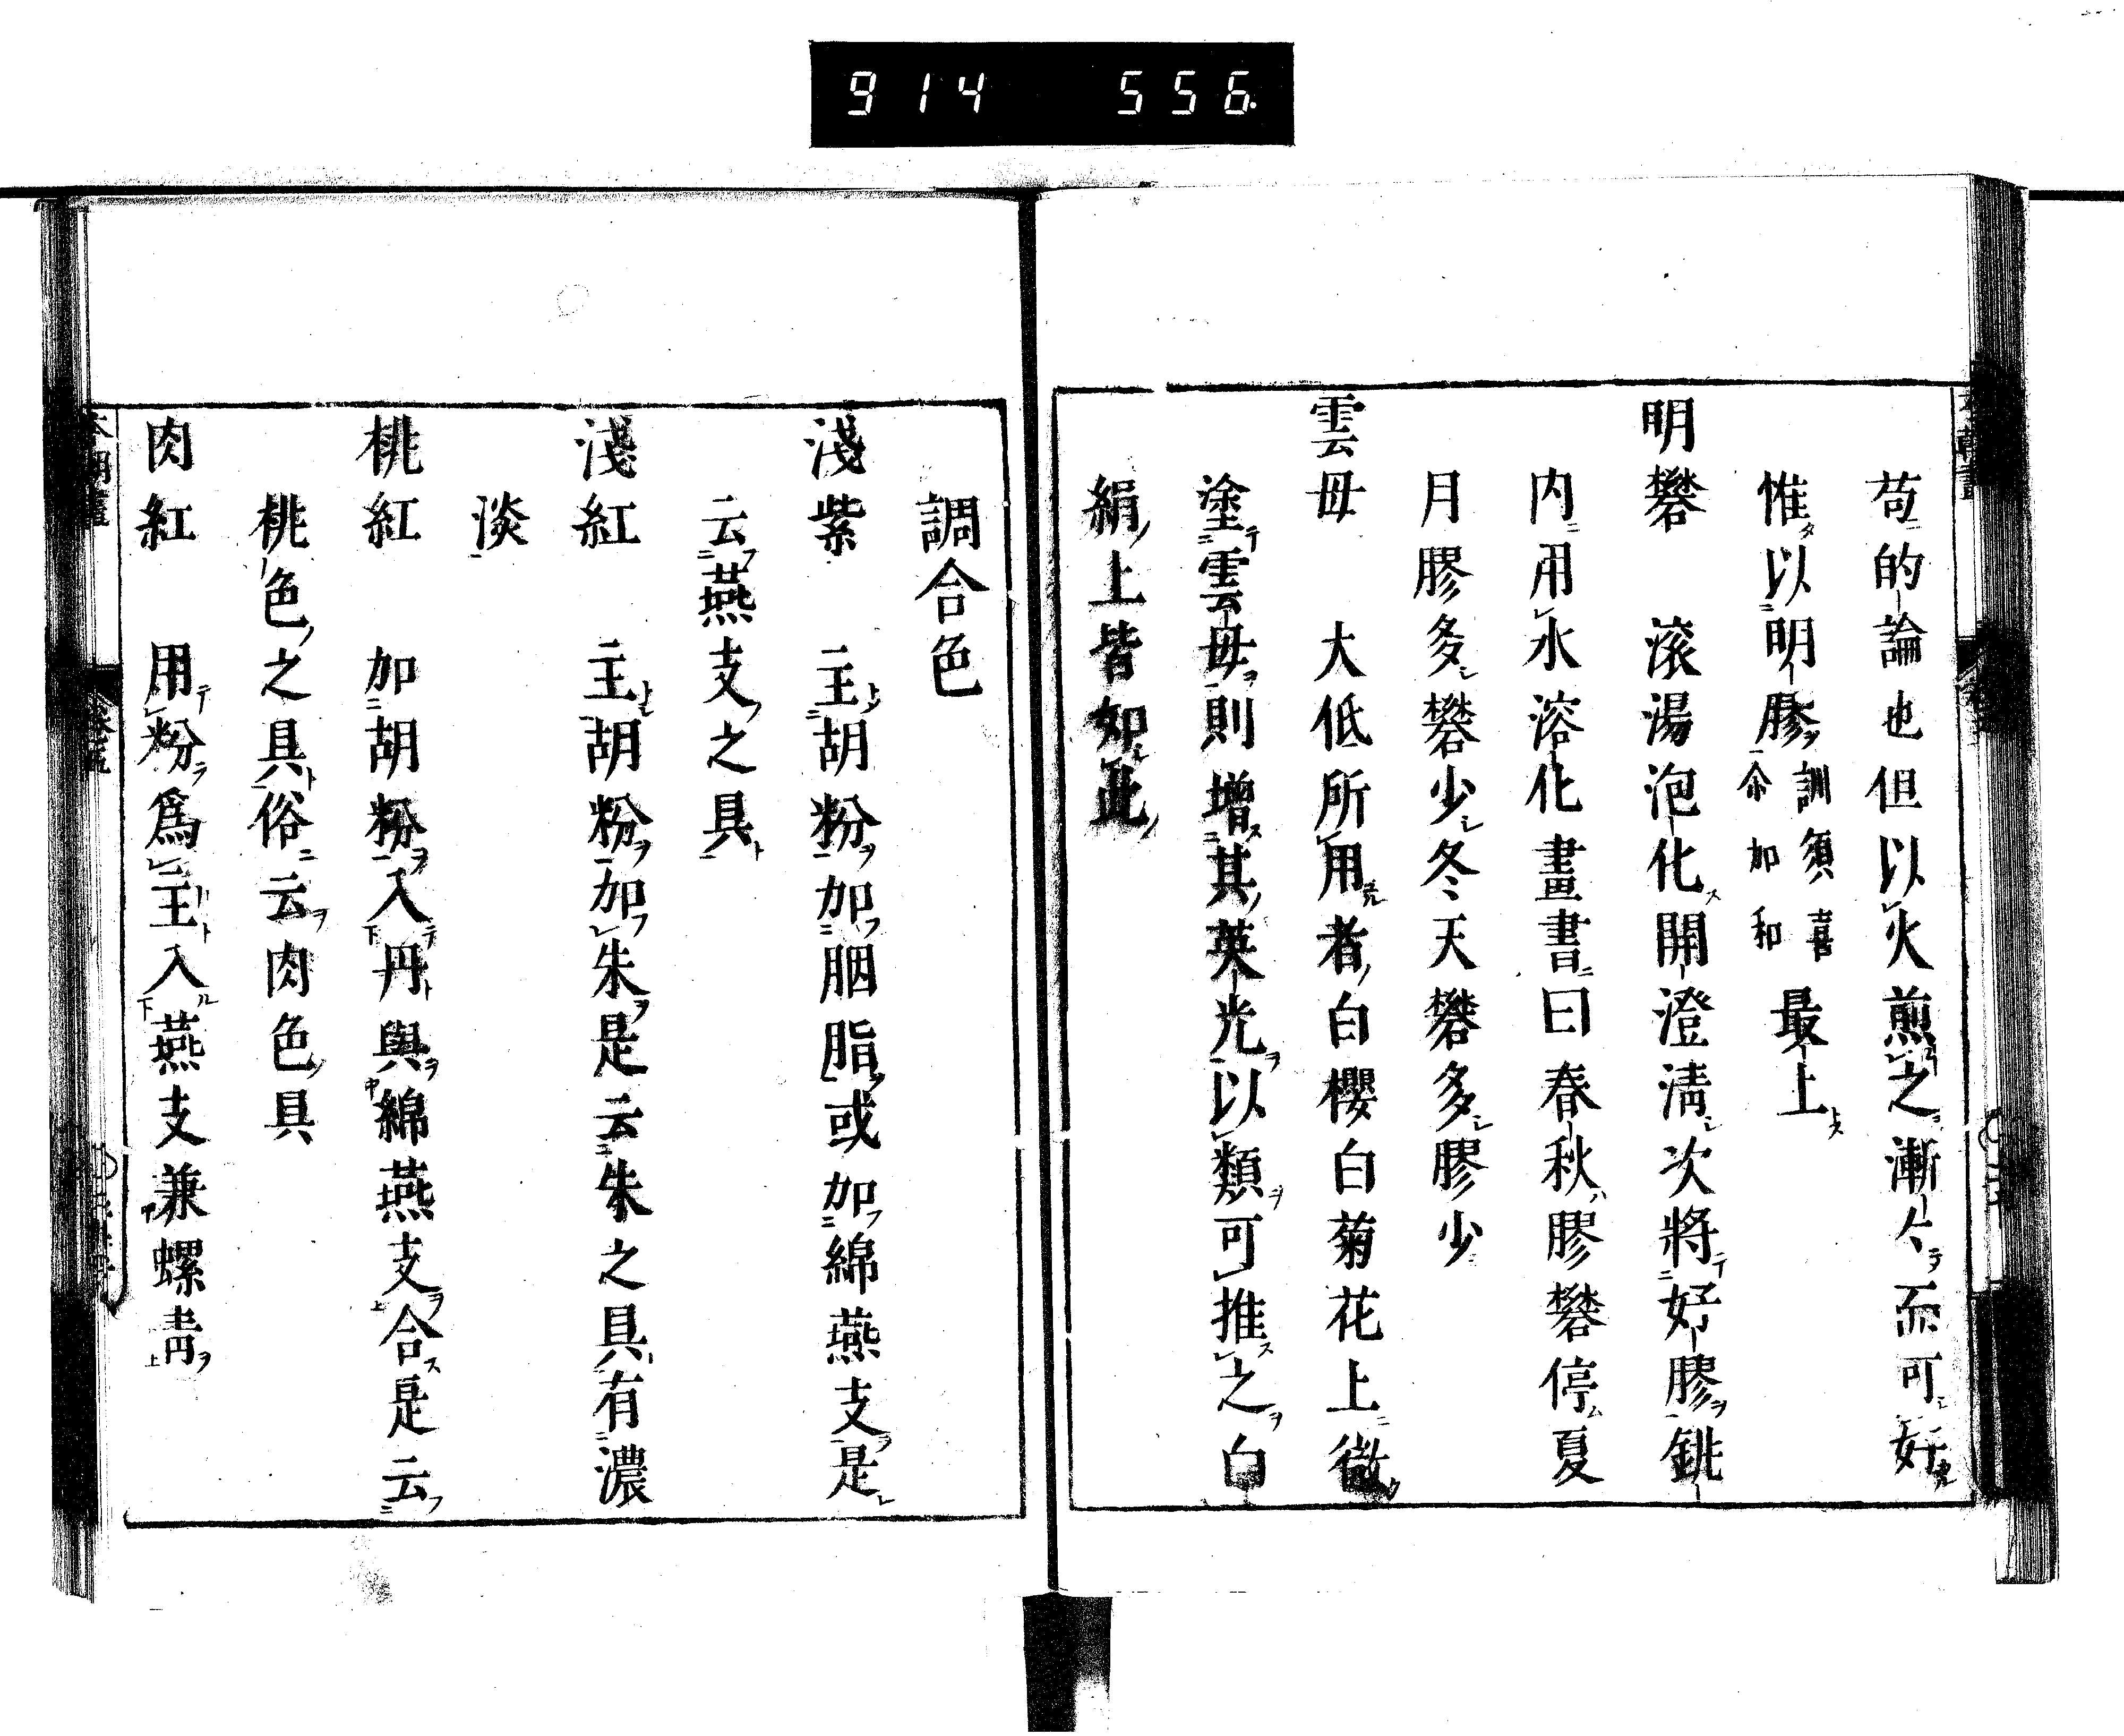 914 556
苟的論也但以火煎之漸々而可好
惟以明膠訓須喜令加和最上
明礬 滚湯泡化開澄清次將好膠銚
内用水溶化畫書曰春秋膠礬停夏
月膠多礬少冬天礬多膠少
雲母 大低所用者白櫻白菊花上微
塗雲母則增其英光以類可推之白
絹上皆如此
調合色
淺紫 主胡粉加胭脂或加綿燕支是
云燕支之具
淺紅 主胡粉加朱是云朱之具有濃
淡
桃紅 加胡粉入丹與綿燕支合是云
桃色之具俗云肉色具
肉紅 用粉爲主入燕支兼螺靑